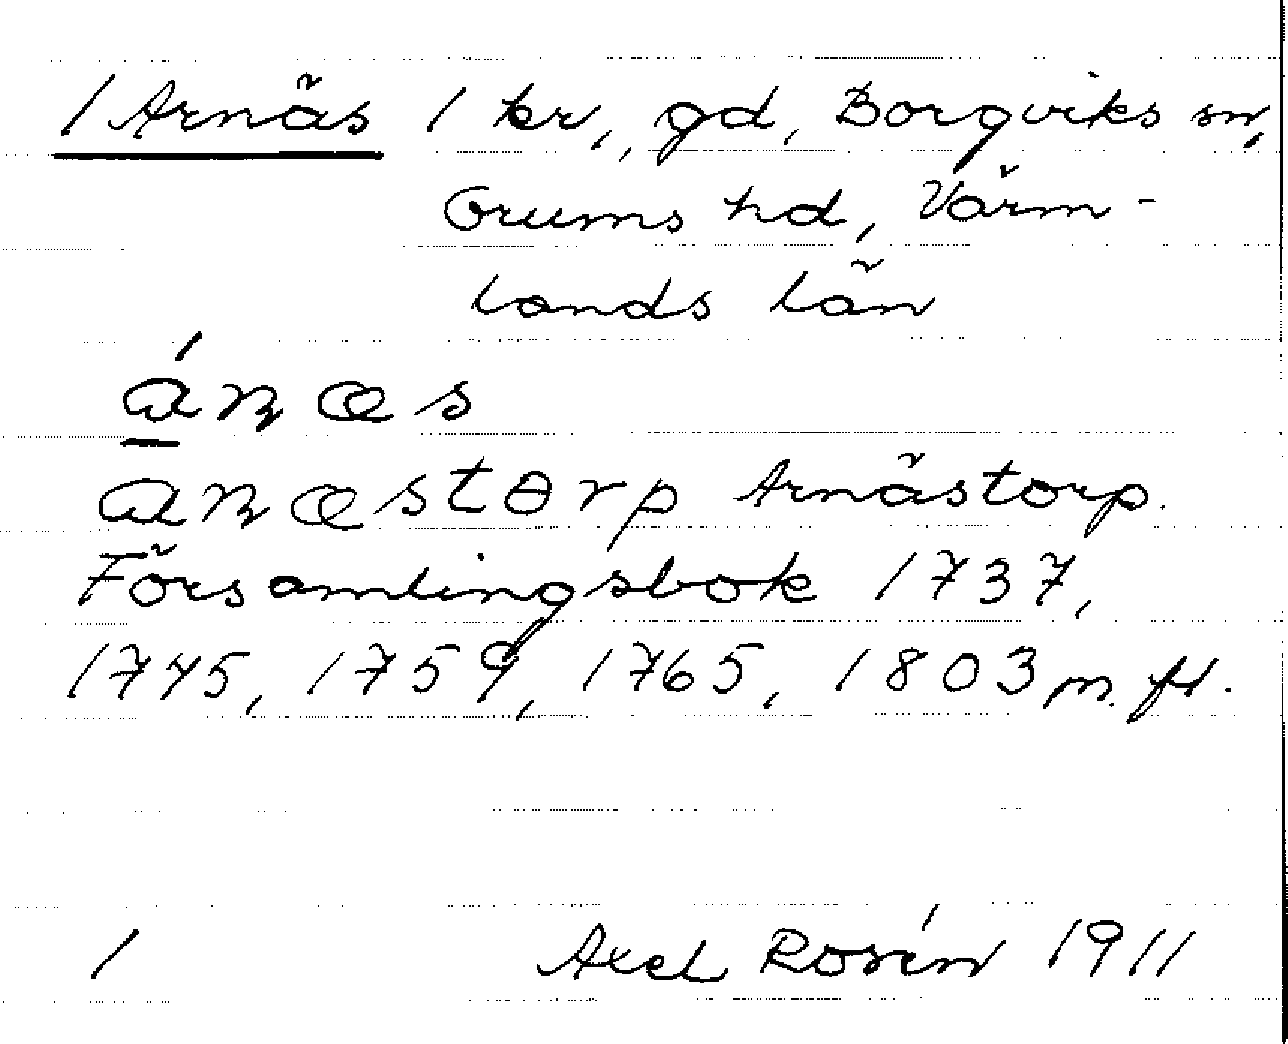 1 Arnäs 1 kr,, gd, Borgviks sn,
Grums hd, Värm-
lands län
ánæs
anæstɵrp Arnästorp.
Församlingsbok 1737,
1745, 1759, 1765, 1803 m. fl.
1 Axel Rosén 1911